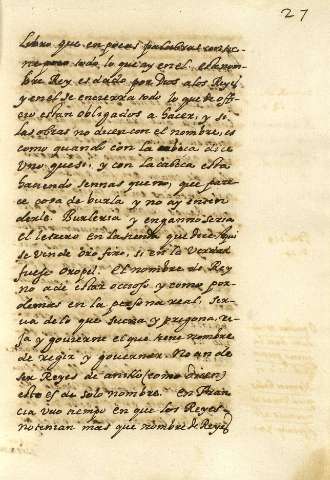 27
Libro que en pocas palabras contie
ne todo lo que ay en el. El nom
bre Rey es dado por Dios a los Reyes
y en el se encierra todo lo que de offi
cio estan obligados a hacer, y si
las obras no dicen con el nombre, es
como quando con la cabeca dice
uno que si, y con la cabeca esta
haciendo sennas que no, que pare
ce cosa de burla y no ay enten
derle. Burleria y enganno seria
el letrero en la tienda que dice, Aqui
se vende oro fino, si en la verdad
fuese oropel. El nombre de Rey
no a de estar ocioso y como por
demas en la persona real, sir
va de lo que suena y pregona, ri
ja y govierne el que tiene nombre
de regir y governar. No an de
ser Reyes de anillo (como dicen)
esto es de solo nombre. En Fran
cia vuo tiempo en que los Reyes
no tenian mas que nombre de Reyes